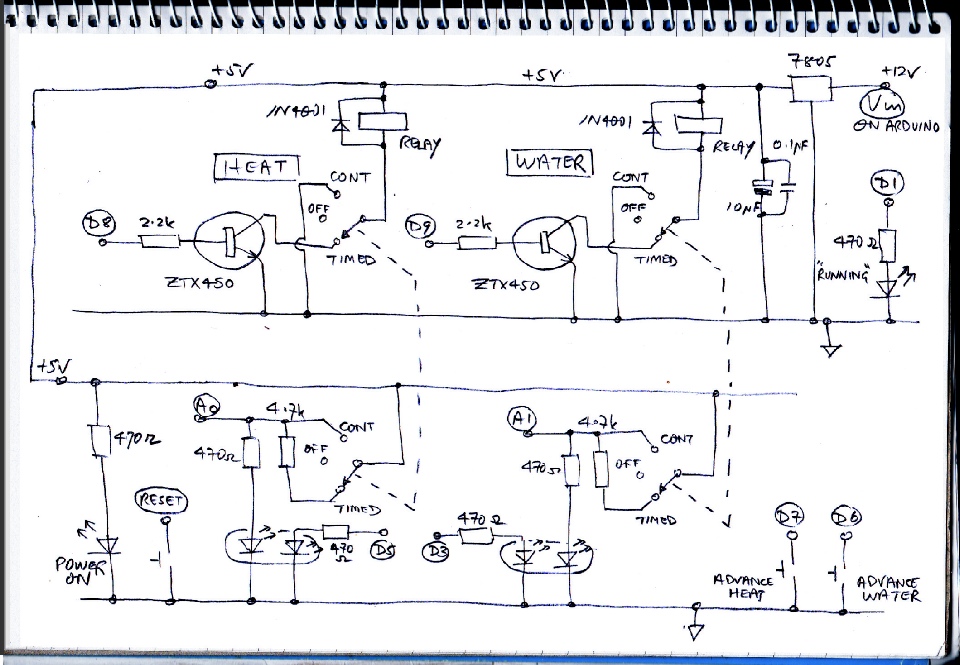 7805
+5V
+5V
+12V
Vin
ON ARDUINO
1N4001
RELAY
1N4001
RELAY
0.1µF
10µF
HEAT
WATER
CONT
OFF
TIMED
CONT
OFF
TIMED
D8
2.2k
ZTX450
D9
2.2k
ZTX450
D1
470Ω
"RUNNING"
+5V
470Ω
POWER
ON
RESET
A0
4.7k
470Ω
CONT
OFF
TIMED
470
Ω
D5
A1
4.7k
470Ω
CONT
OFF
TIMED
470Ω
D3
D7
ADVANCE
HEAT
D6
ADVANCE
WATER